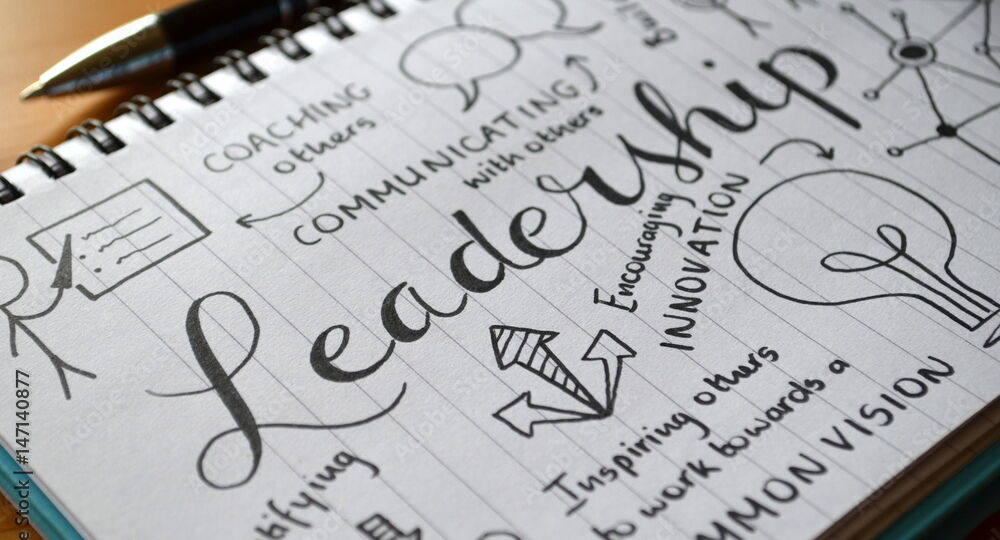 COACHING
others
COMMUNICATING
with others
Leadership
Encouraging
INNOVATION
Inspiring others
to work towards a
VISION
Adobe Stock | #147140877